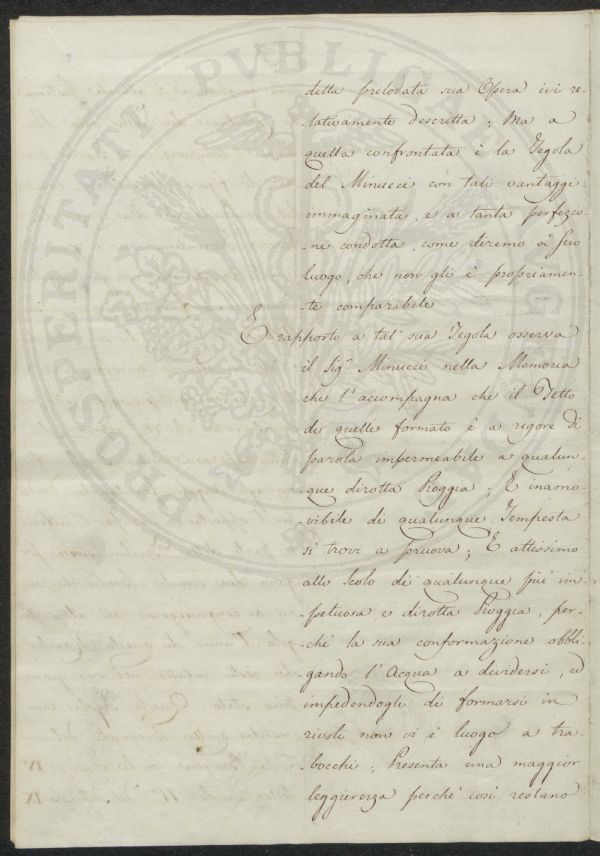 della prelodata sua Opera ivi re-
-lativamente descritta; Ma a
quella confrontata è la Tegola
del Minucci con tali vantaggi
immaginata, e a tanta perfezio-
-ne condotta, come diremo a suo
luogo, che non gli è propriamen-
-te comparabile
E rapporto a tal' sua Tegola osserva
il Sig.r Minucci nella Memoria
che l'accompagna che il Tetto
di quelle formato è a rigore di
parola impermeabile a qualun-
-que dirotta Pioggia; E inamo-
-vibile di qualunque Tempesta
si trovi a pruova; E attissimo
allo Scolo di qualunque più im-
-petuosa e dirotta Pioggia, per-
-chè la sua conformazione obbli-
-gando l'Acqua a dividersi, ed
impedendogli di formarsi in
rivoli non vi è luogo a tra-
-bocchi; Presenta una maggior
leggierezza perchè così restano
PROSPERITATI PUBLICAE